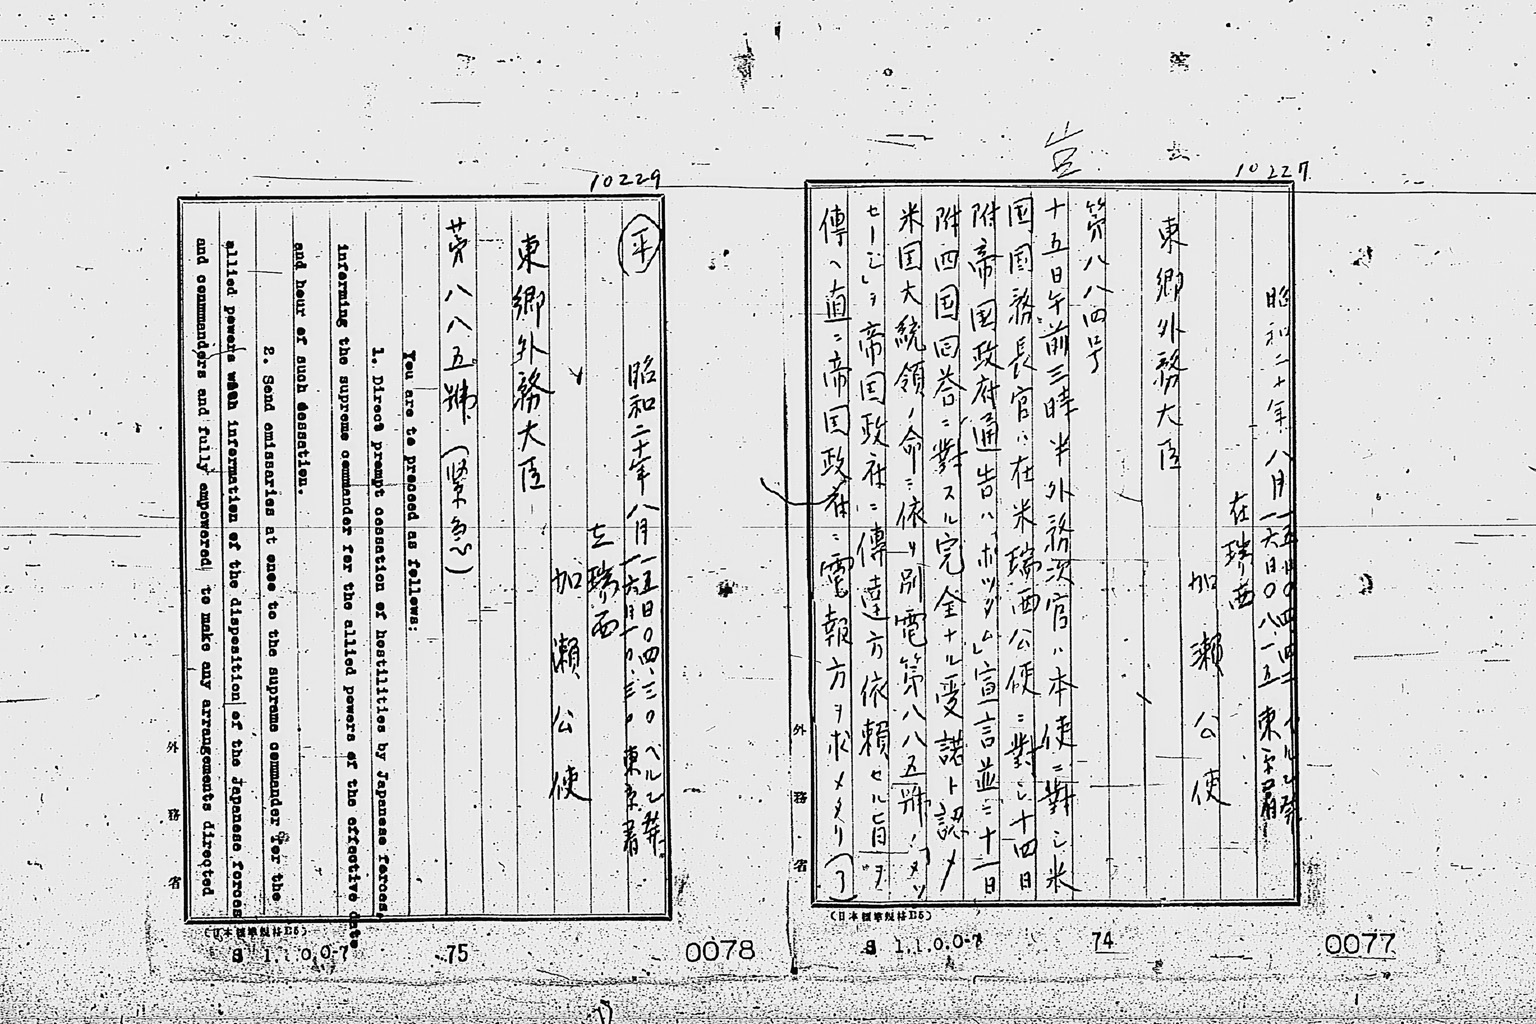 10227
昭和二十年八月一五日〇四四〇ベルン発
一六日〇八一五東京着
在瑞西
加瀬公使
東郷外務大臣
第八八四号
十五日午前三時半外務次官ハ本使ニ對シ米
国国務長官ハ在米瑞西公使ニ對シ十四日
附帝国政府通告ハ「ポツダム」宣言並ニ十一日
附四国回答ニ對スル完全ナル受諾ト認メ
米国大統領ノ命ニ依リ別電第八八五號ノ「メツ
セージ」ヲ帝国政府ニ傳達方依賴セル旨ヲ
傳ヘ直ニ帝国政府ニ電報方ヲ求メタリ(了)
外務省
(日本標準規格B5)
S 1.1.0.0-7
74
0077
10229
平
昭和二十年八月一五日〇四、三〇ベルン発
一六日一〇、三〇東京着
在瑞西
加瀬公使
東郷外務大臣
第八八五號(緊急)
You are to proceed as follows:
1. Direct prompt cessation of hostilities by Japanese forces,
informing the supreme commander for the allied powers of the effective date
and hour of such cessation.
2. Send emissaries at once to the supreme commander for the
allied powers with information of the disposition of the Japanese forces
and commanders and fully empowered to make any arrangements directed
外務省
(日本標準規格B5)
S 1.1.0.0-7
75
0078